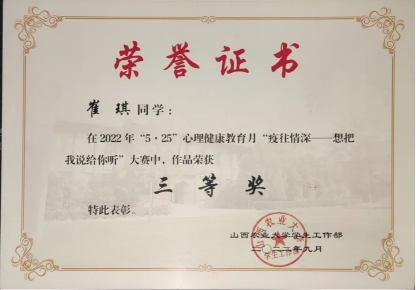 荣誉证书
崔琪同学：
在2022年“5·25”心理健康教育月“疫往情深——想把
我说给你听”大赛中，作品荣获
三等奖
特此表彰。
山西农业大学学生工作部
二〇二二年九月